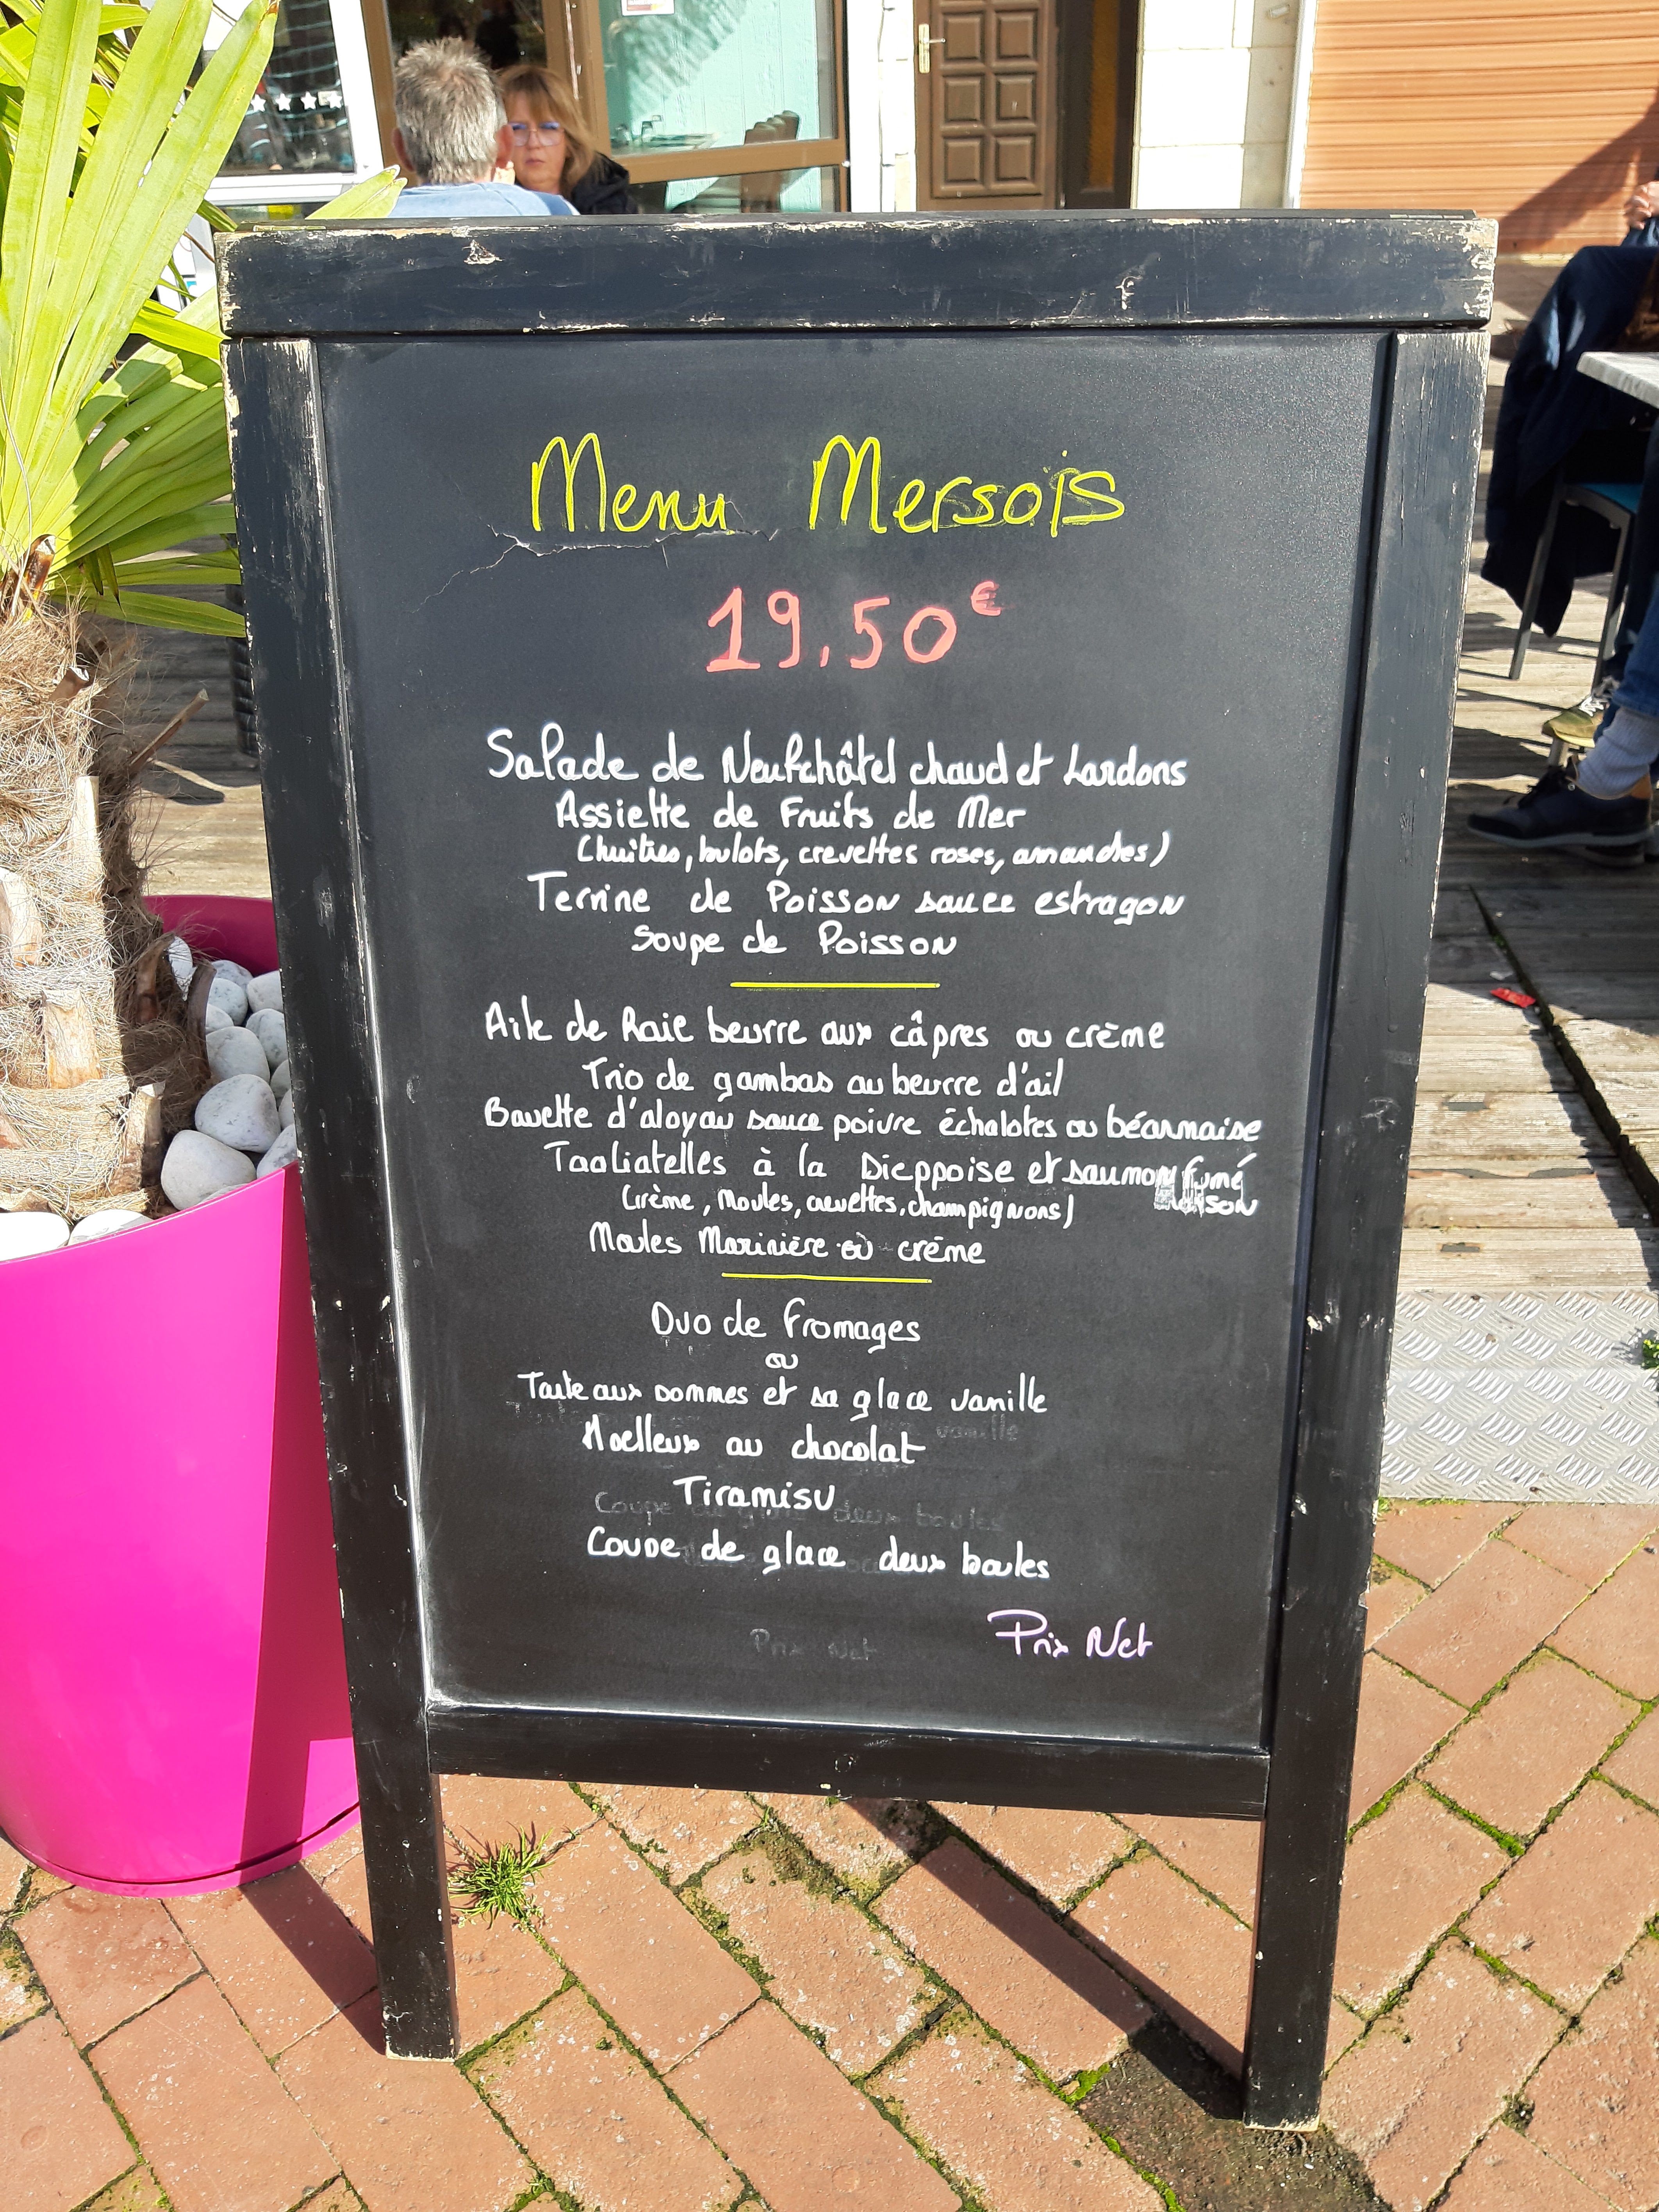 Menu Mersois
19.50€
Salade de Neufchâtel chaud et Lardons
Assiette de Fruits de Mer
(huitres, bulots, crevettes roses, amandes)
Terrine de Poisson sauce estragon
Soupe de Poisson
Aile de Raie beurre aux câpres ou crème
Trio de gambas au beurre d'ail
Bavette d'aloyau sauce poivre échalotes ou béarnaise
Tagliatelles à la Dieppoise et saumon fumé
maison
(crème, moules, crevettes, champignons)
Moules Marinière ou crème
Duo de fromages
ou
Tarte aux pommes et sa glace vanille
vanille
Moelleux au chocolat
Tiramisu
Coupe de glace deux boules
Coupe de glace deux boules
Prix Net
Prix Net